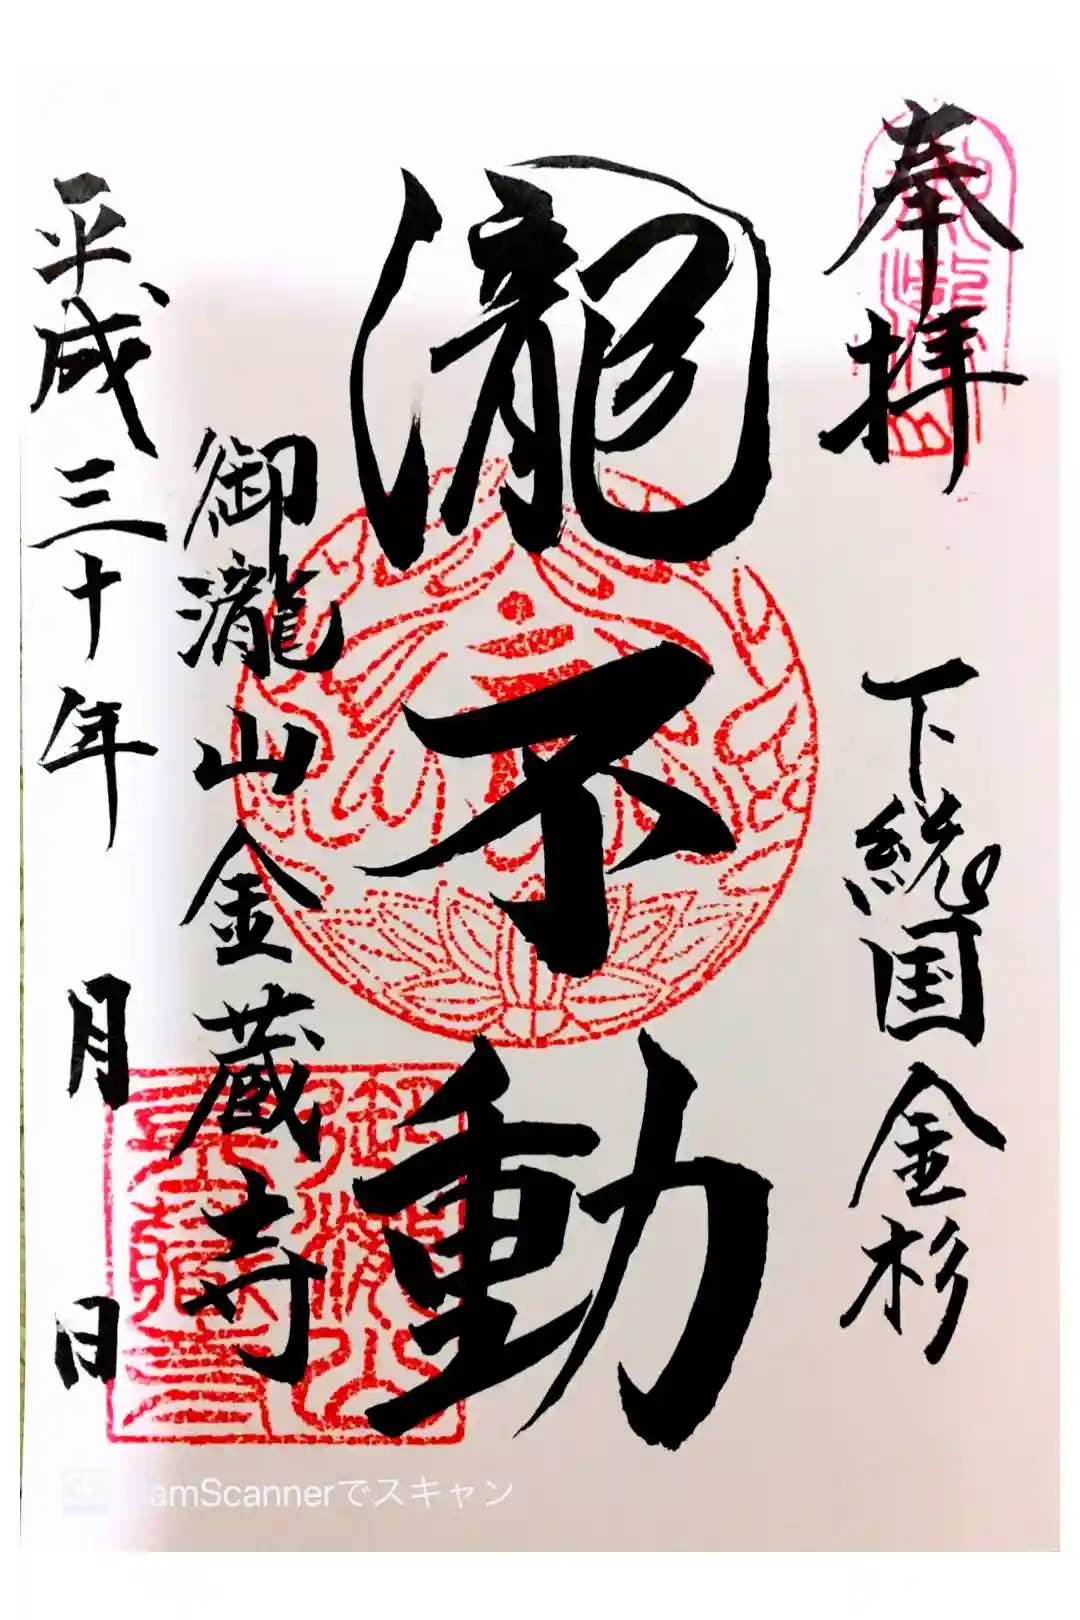 奉拝
下総国金杉
瀧不動
御瀧山金蔵寺
平成三十年 月 日
御瀧山
金蔵寺
amScannerでスキャン